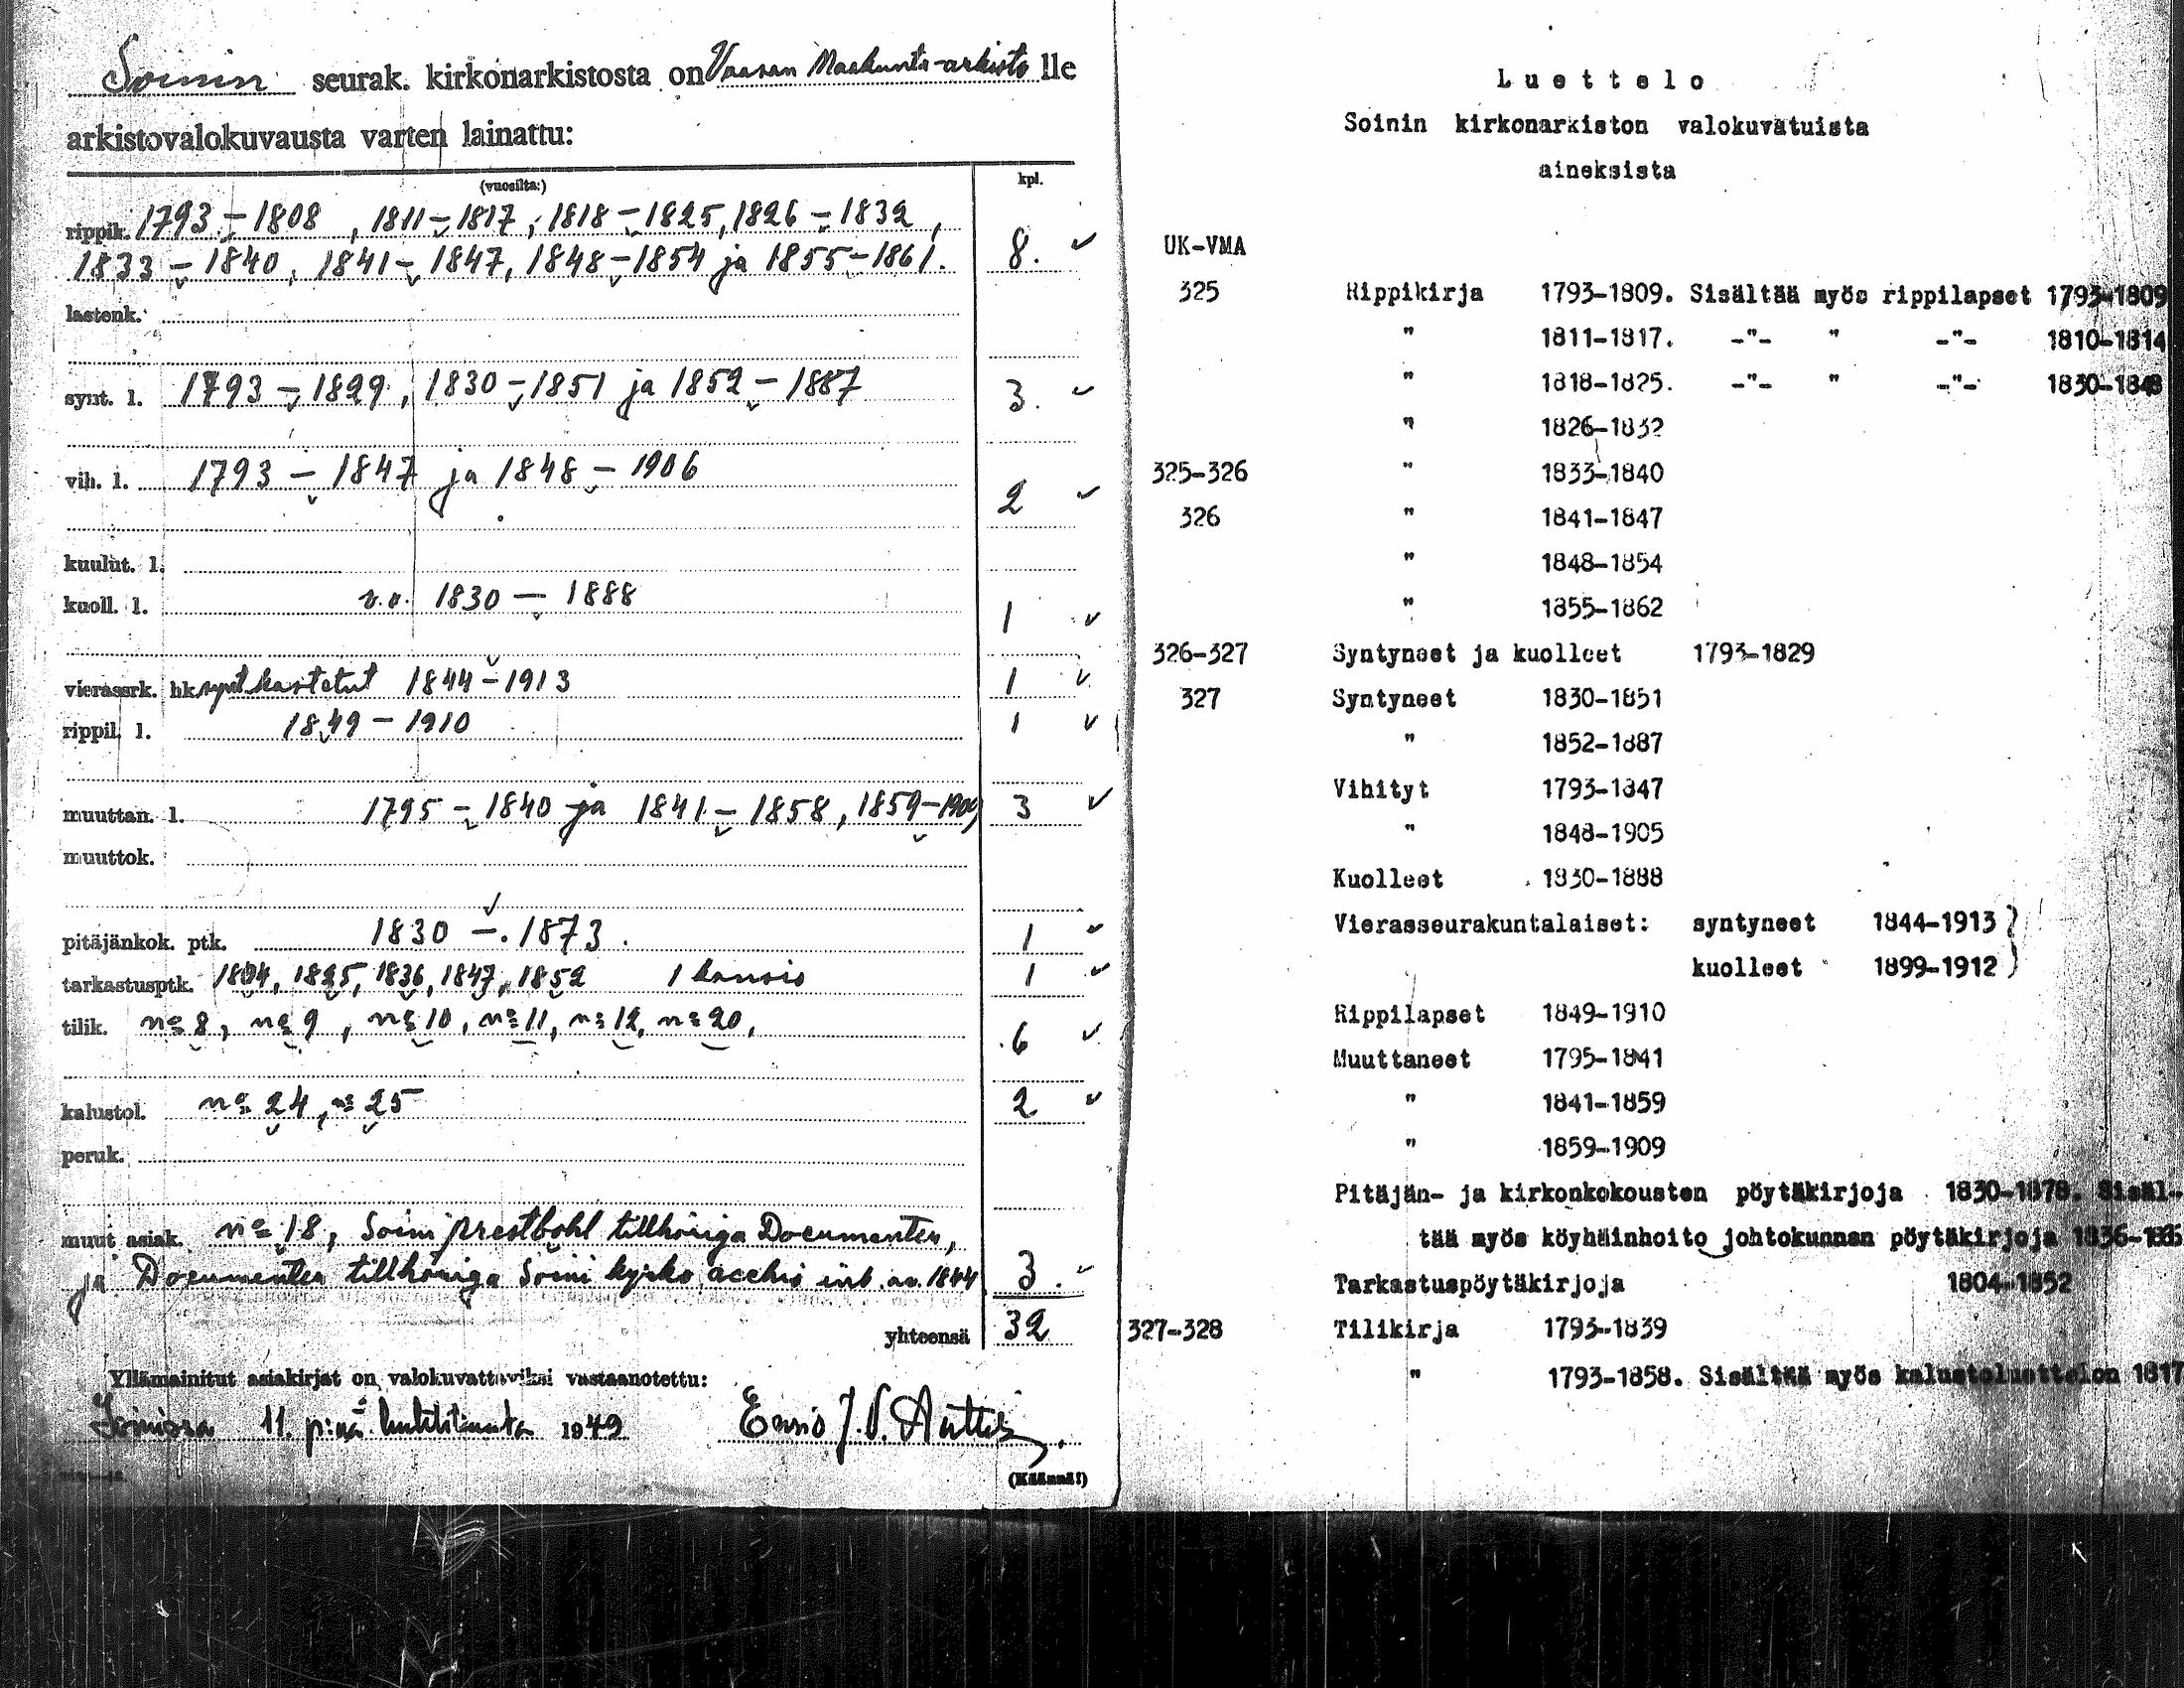 Soinin seurak. kirkonarkistosta on Vaasan Maakunta-arkisto lle
arkistovalokuvausta varten lainattu:
(vuosilta:) kpl.
rippik. 1793 – 1808 , 1811 – 1817 , 1818 – 1825, 1826 – 1832 ,
1833 – 1840, 1841 – 1847, 1848 – 1854 ja 1855 – 1861. 8. ✓
lastenk.
synt. l. 1793 – 1829, 1830 – 1851 ja 1852 – 1887 3. ✓
vih. l. 1793 – 1847 ja 1848 – 1906 2 ✓
kuulut. l.
kuoll. l. v.v. 1830 – 1888 1 ✓
vierassrk. hk. synt. kastetut 1844 – 1913 1 ✓
rippil. l. 1849 – 1910 1 ✓
muuttan. l. 1795 – 1840 ja 1841 – 1858, 1859 – 1909 3 ✓
muuttok.
pitäjänkok. ptk. 1830 – 1873. 1 ✓
tarkastusptk. 1804, 1825, 1836, 1847, 1852 1 kansio 1 ✓
tilik. nº 8, nº 9, nº 10, nº 11, nº 12, nº 20, 6 ✓
kalustol. nº 24, nº 25 2 ✓
peruk.
muut asiak. nº 18, Soini prestbohl tillhöriga Documenter,
ja Documenter tillhöriga Soini kyrko 1844 3. ✓
yhteensä 32
Yllämainitut asiakirjat on valokuvattaviksi vastaanotettu:
Soinissa 11. p:nä huhtikuuta 1949 Ensio J. V. Anttila
(Käännä!)
Luettelo
Soinin kirkonarkiston valokuvatuista
aineksista
UK-VMA
325 Rippikirja 1793-1809. Sisältää myös rippilapset 1793-1809
" 1811-1817. -"- " -"- 1810-1814
" 1818-1825. -"- " -"- 1830-1848
" 1826-1832
325-326 " 1833-1840
326 " 1841-1847
" 1848-1854
" 1855-1862
326-327 Syntyneet ja kuolleet 1793-1829
327 Syntyneet 1830-1851
" 1852-1887
Vihityt 1793-1847
" 1848-1905
Kuolleet 1830-1888
Vierasseurakuntalaiset: syntyneet 1844-1913 )
kuolleet 1899-1912 )
Rippilapset 1849-1910
Muuttaneet 1795-1841
" 1841-1859
" 1859-1909
Pitäjän- ja kirkonkokousten pöytäkirjoja 1830-1878. Sisäl-
tää myös köyhäinhoito johtokunnan pöytäkirjoja
Tarkastuspöytäkirjoja 1804-1852
327-328 Tilikirja 1793-1839
" 1793-1858. Sisältää myös kalustoluettelon 1817